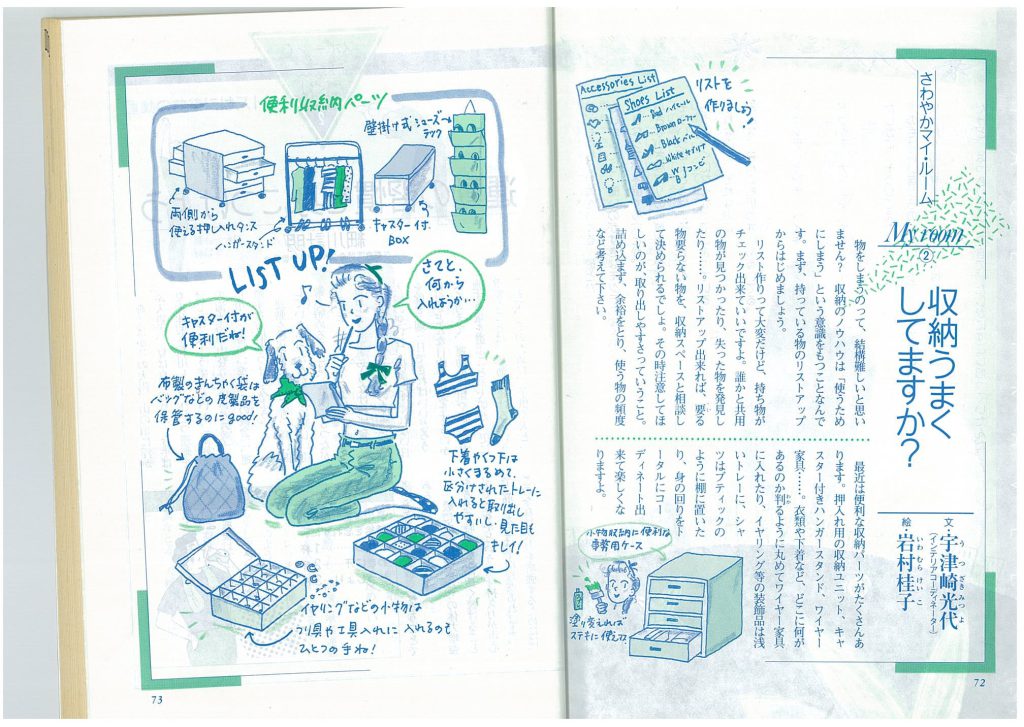 さわやかマイ・ルーム
My room
②
収納うまく
してますか？
文・宇津崎光代
うつざきみつよ
(インテリアコーディネーター)
絵・岩村桂子
いわむらけいこ
物をしまうのって、結構難しいと思い
ません？　収納のノウハウは「使うため
にしまう」という意識をもつことなんで
す。まず、持っている物のリストアップ
からはじめましょう。
リスト作りって大変だけど、持ち物が
チェック出来ていいですよ。誰かと共用
の物が見つかったり、失った物を発見し
たり……。リストアップ出来れば、要る
物要らない物を、収納スペースと相談し
て決められるでしょ。その時注意してほ
しいのが、取り出しやすさっていうこと。
詰め込まず、余裕をとり、使う物の頻度
など考えて下さい。
最近は便利な収納パーツがたくさんあ
ります。押入れ用の収納ユニット、キャ
スター付きハンガースタンド、ワイヤー
家具……。衣類や下着など、どこに何が
あるのか判るように丸めてワイヤー家具
わか
に入れたり、イヤリング等の装飾品は浅
いトレーに、シャ
ツはブティックの
ように棚に置いた
り、身の回りをト
ータルにコー
ディネート出
来て楽しくな
りますよ。
Accessories List
Shoes List
Red ハイヒール
Brown ローファー
Black パンプ
White サブリナ
W/B コンビ
リストを
作りましょう!
小物収納に便利な
事務用ケース
塗り変えれば
ステキに使えて
72
便利収納パーツ
両側から
使える押し入れタンス
ハンガースタンド
キャスター付
BOX
壁掛け式シューズ
ラック
LIST UP!
さてと、
何から
入れようか…
キャスター付が
便利だね!
布製のきんちゃく袋は
バッグなどの皮製品を
保管するのにgood!
下着やくつ下は
小さくまるめて、
区分けされたトレーに
入れると取り出し
やすいし、見た目も
キレイ!
イヤリングなどの小物は
つり具や工具入れに入れるのも
ひとつの手ね!
73